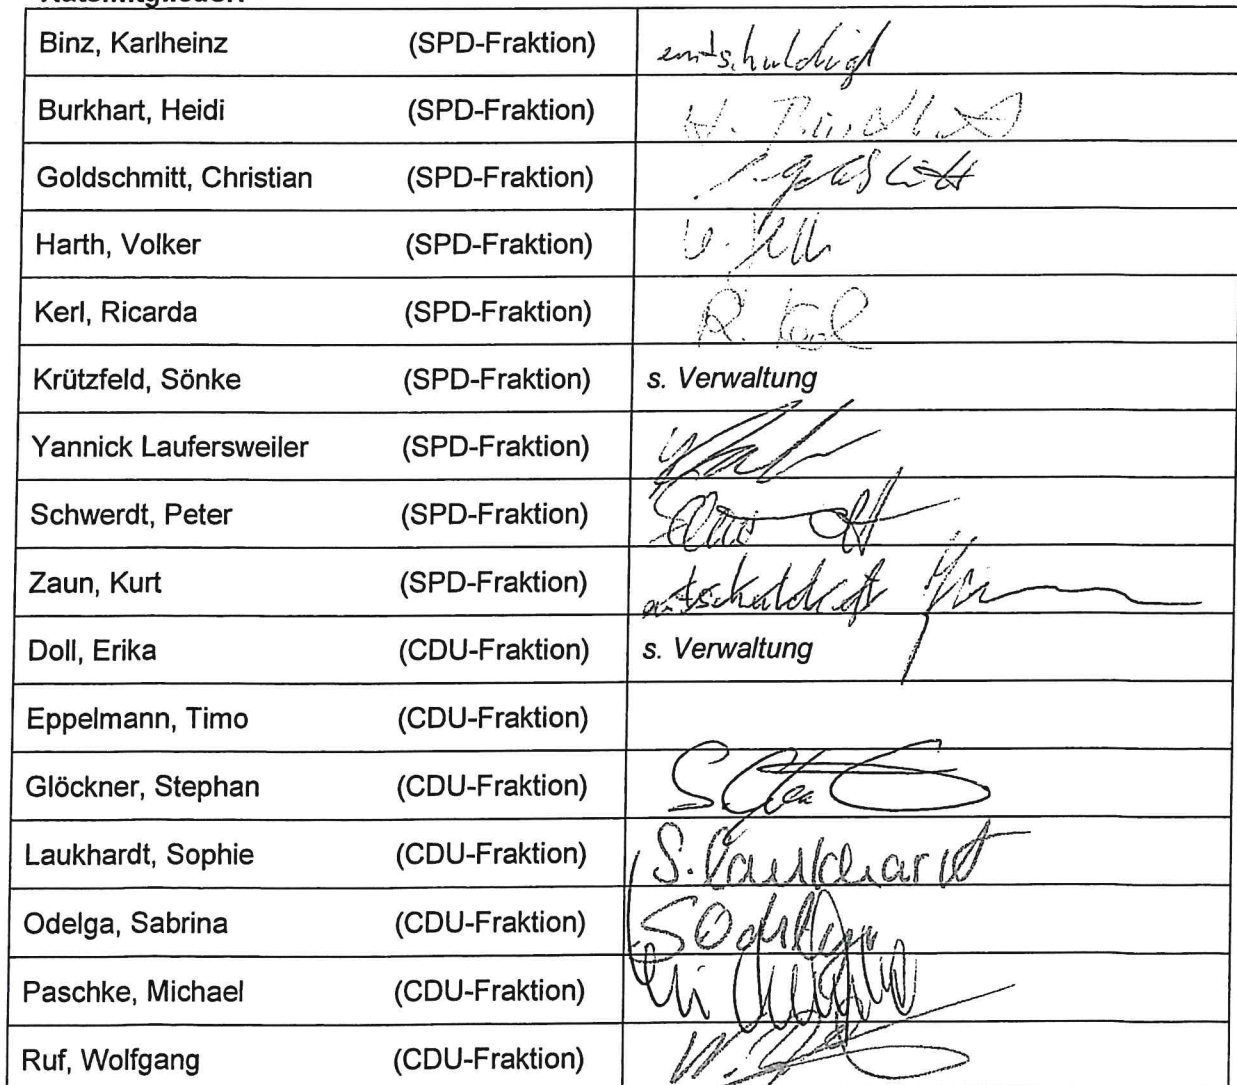 Ratsmitglieder:
Binz, Karlheinz (SPD-Fraktion) entschuldigt
Burkhart, Heidi (SPD-Fraktion)
Goldschmitt, Christian (SPD-Fraktion)
Harth, Volker (SPD-Fraktion)
Kerl, Ricarda (SPD-Fraktion) R. Kerl
Krützfeld, Sönke (SPD-Fraktion) s. Verwaltung
Yannick Laufersweiler (SPD-Fraktion)
Schwerdt, Peter (SPD-Fraktion)
Zaun, Kurt (SPD-Fraktion) entschuldigt
Doll, Erika (CDU-Fraktion) s. Verwaltung
Eppelmann, Timo (CDU-Fraktion)
Glöckner, Stephan (CDU-Fraktion)
Laukhardt, Sophie (CDU-Fraktion) S. Laukhardt
Odelga, Sabrina (CDU-Fraktion) S Odelga
Paschke, Michael (CDU-Fraktion)
Ruf, Wolfgang (CDU-Fraktion)